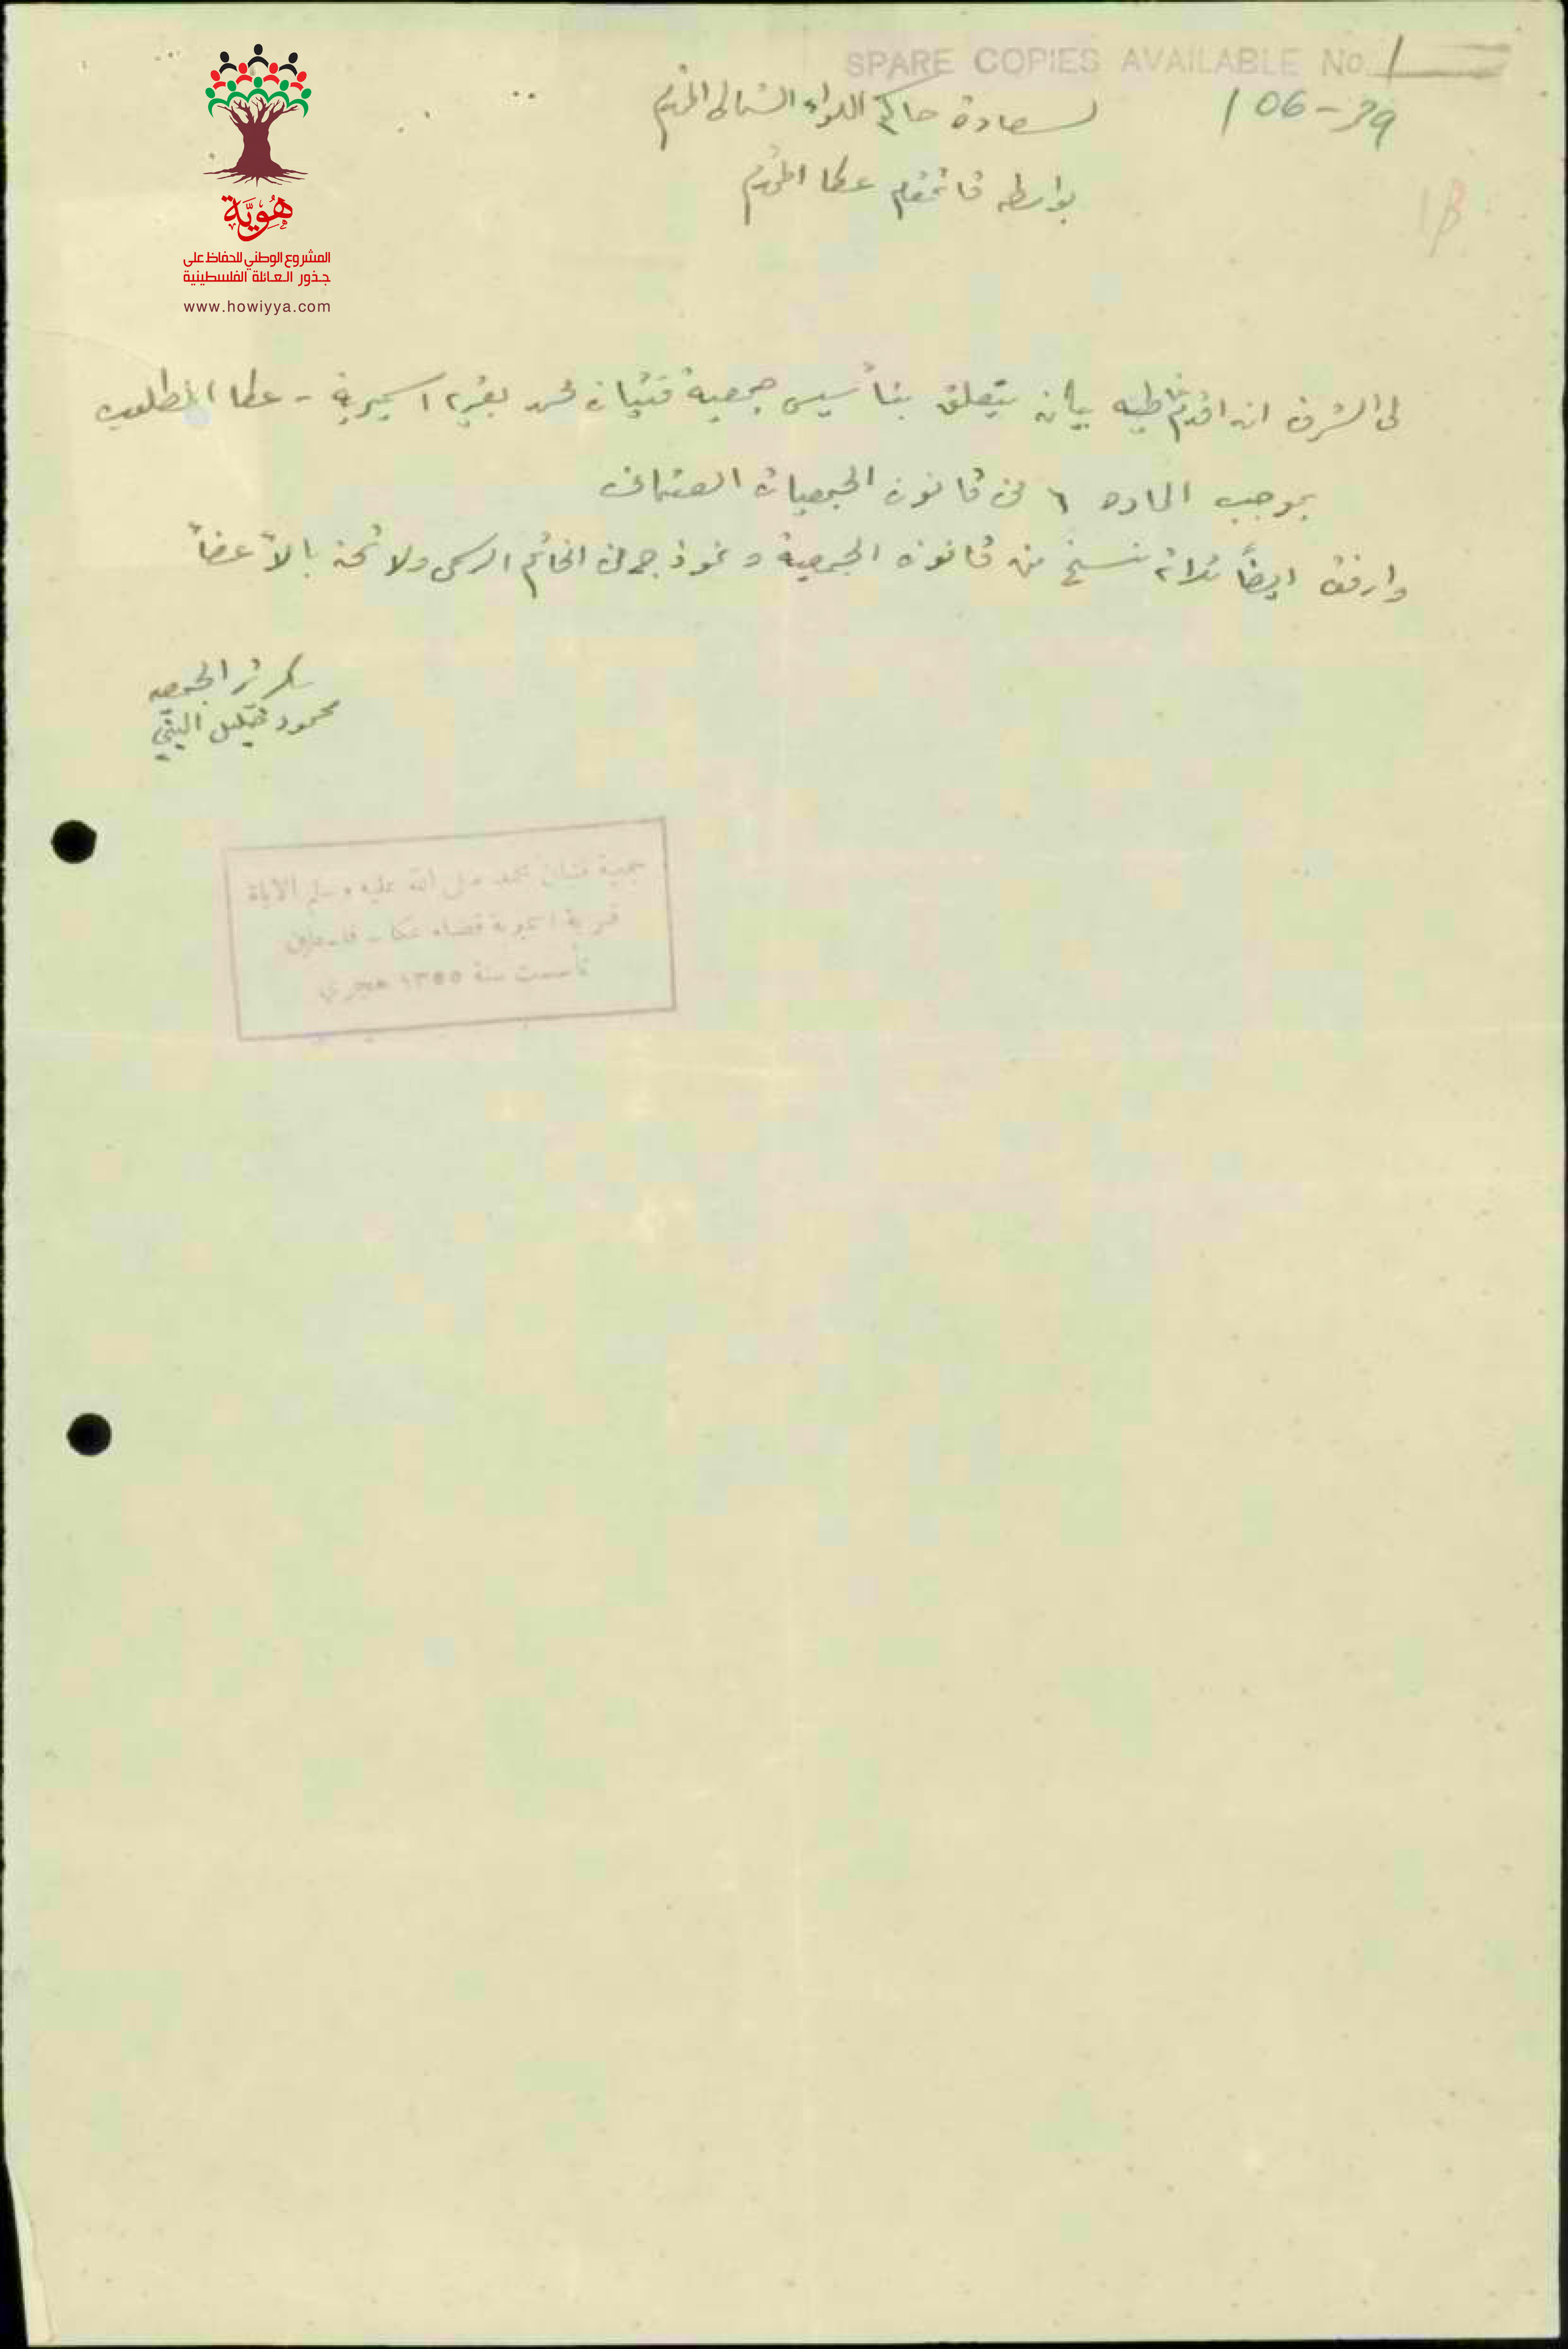 SPARE COPIES AVAILABLE No 1
106-39
لسعادة حاكم اللواء الشمالي المحترم
بواسطه قائمقام عكا المحترم
هُوِيَّة
المشروع الوطني للحفاظ على
جذور العائلة الفلسطينية
www.howiyya.com
لي الشرف ان اقدم طيه بيان يتعلق بتأسيس جمعية فتيان محمد بقرية السميرية - عكا المطلوب
بموجب الماده ٦ من قانون الجمعيات العثماني
وارفق ايضاً ثلاث نسخ من قانون الجمعية ونموذج من الخاتم الرسمي ولائحة بالأعضأ
سكرتر الجمعيه
محمود
جمعية فتيان محمد صلى الله عليه وسلم
قرية السميرية قضاء عكا - فلسطين
تأسست سنة ١٣٥٥ هجري